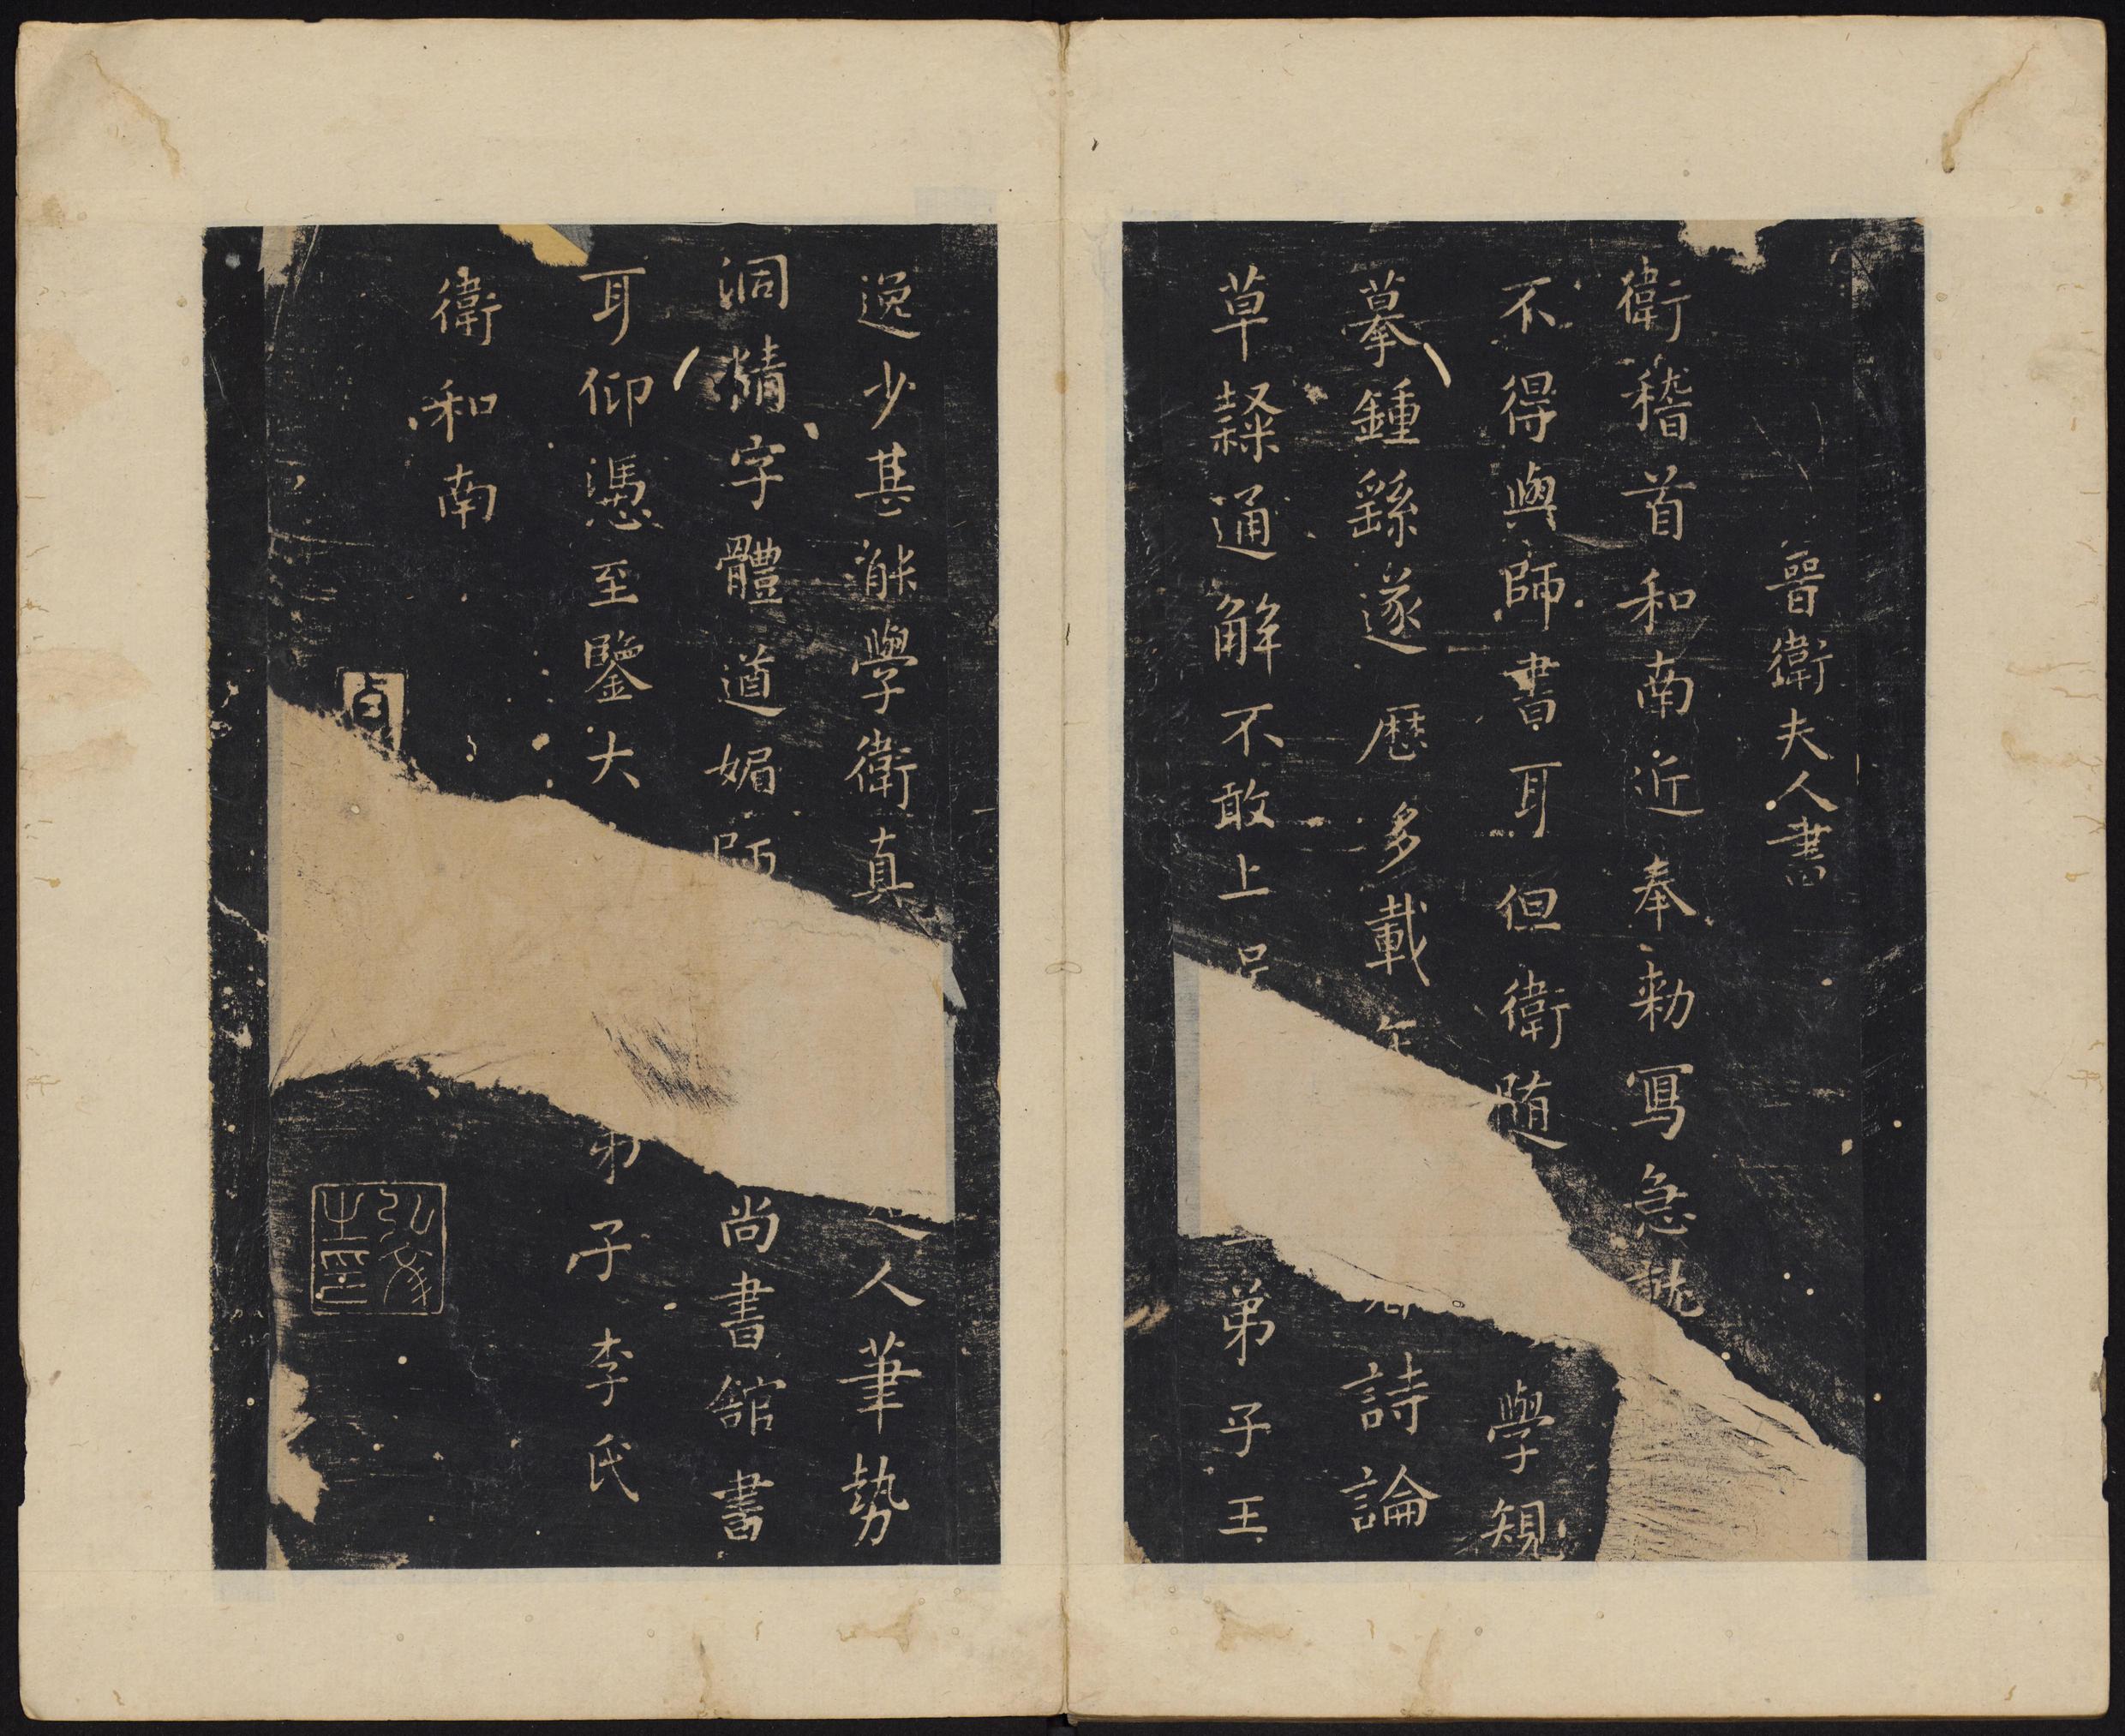 晉衛夫人書
衛稽首和南近奉勑寫急就
不得與師書耳但衛隨學規
摹鍾繇遂歷多載詩論
草隸通解不敢上弟子王
逸少甚能學衛真人筆勢
洞精字體遒媚師尚書館書
耳仰憑至鑒大弟子李氏
衛和南
弘文之印